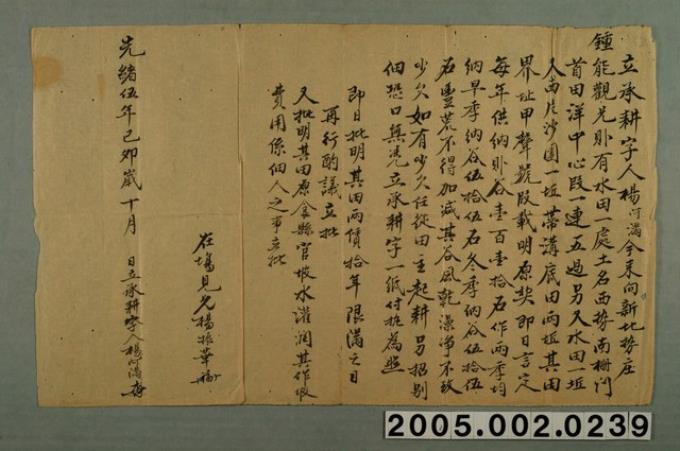 立承耕字人楊阿滿今來向新北勢庄
鍾能觀兄卦有水田一處土名西勢南柵門
首田洋中心段一連五過另又水田一坵
又南片沙圍一坵帶溝底田兩坵其田
界址甲聲號段載明原契即日言定
每年供納卦谷壹百壹拾石作兩季均
納早季納谷伍拾伍石冬季納谷伍拾伍
石豐荒不得加減其谷風乾濕淨不敢
少欠如有少欠任從田主起耕另招別
佃恐口無憑立承耕字一紙付执為照
即日批明其田兩價拾年限滿之日
再行酌議立批
又批明其田原食縣官坡水灌潤其作坡
費用係佃人之事立批
在場見兄楊振華
光緒伍年己卯歲十月 日立承耕字人楊阿滿
2005.002.0239